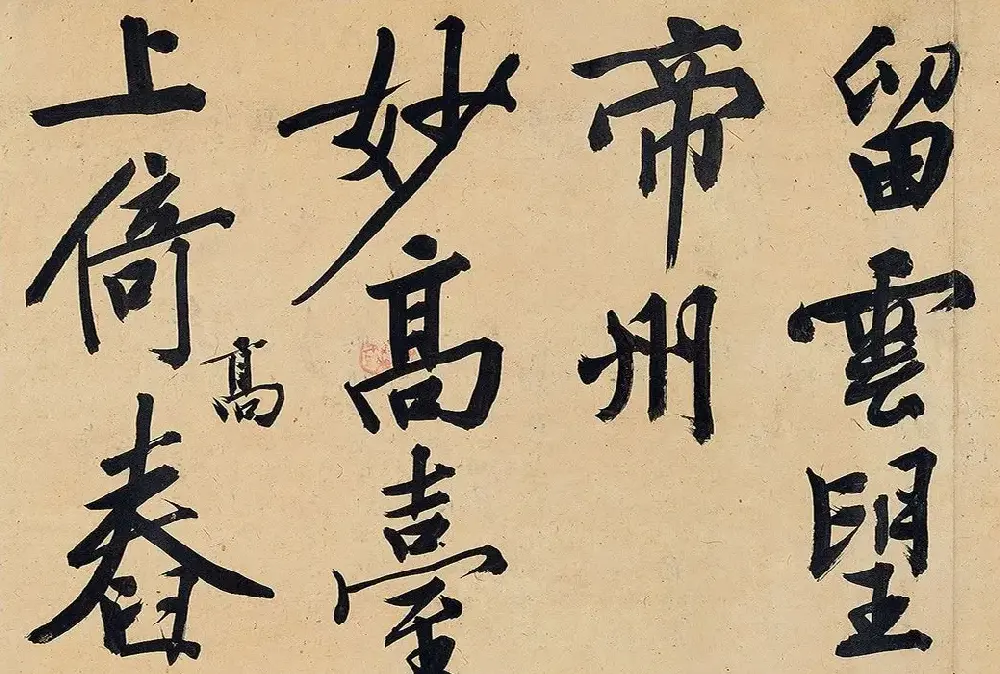 留雲望
帝州
妙高臺
上倚高舂